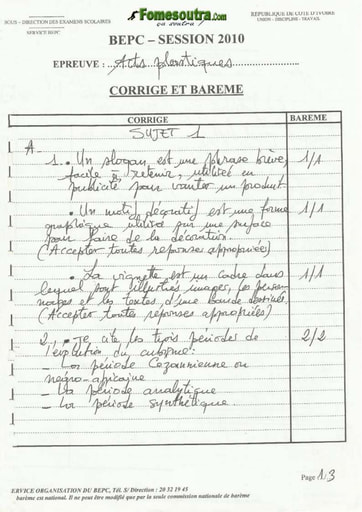 SOUS - DIRECTION DES EXAMENS SCOLAIRES
SERVICE BEPC
Fomesoutra.com
ça soutra !
REPUBLIQUE DE COTE D'IVOIRE
UNION - DISCIPLINE - TRAVAIL
BEPC – SESSION 2010
EPREUVE : Arts plastiques
CORRIGE ET BAREME
CORRIGE BAREME
SUJET 1
A
1. • Un slogan est une phrase brève, 1/1
facile à retenir, utilisée en
publicité pour vanter un produit
• Un motif décoratif est une forme 1/1
graphique utilisée sur une surface
pour faire de la décoration.
(Accepter toutes réponses appropriées)
• La vignette est un cadre dans 1/1
lequel sont illustrés images, les person-
nages et les textes d'une bande dessinée
(Accepter toutes réponses appropriées)
2. • Je cite les trois périodes de 2/2
l'évolution du cubisme :
- La période Cézannienne ou
négro-africaine
- La période analytique
- La période synthétique
Page 1/3
ERVICE ORGANISATION DU BEPC, Tél. S/ Direction : 20 32 19 45
barème est national. Il ne peut être modifié que par la seule commission nationale de barème